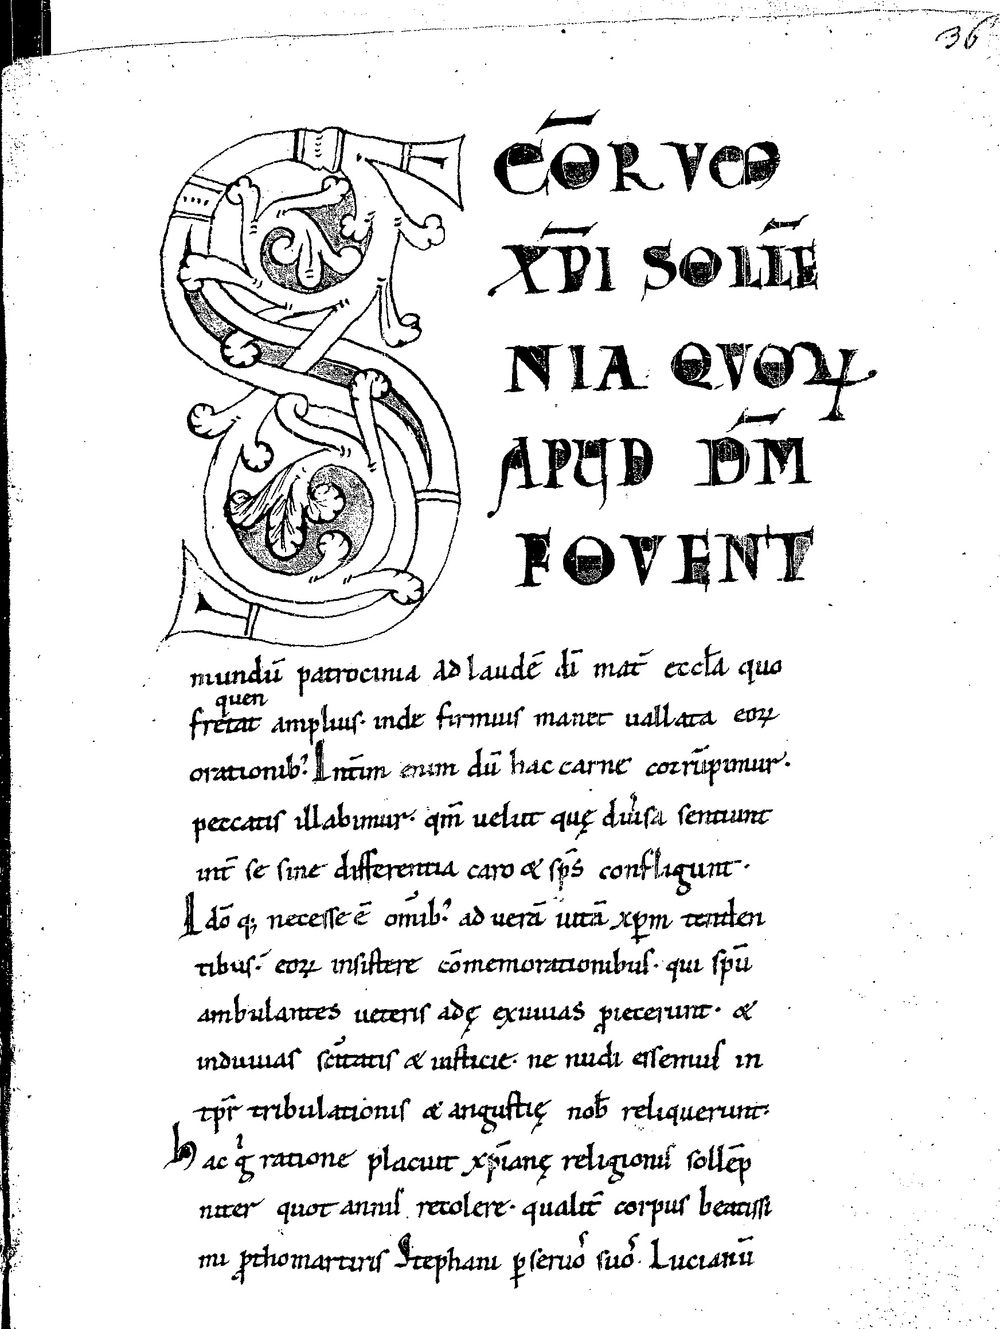 36
S C̄ORVM
XP̄I SOLLĒ
NIA QVOꝜ
APUD D̄M
FOVENT
mundū patrocinia ad laudē dī mat̄ eccłᷓa quo
quen
fretat amplius· inde firmius manet uallata eoꝝ
orationib; Int̄im enim dū hac carne corrūpimur·
peccatis illabimur· qm̄ uelut quę diu͛sa sentiunt
int̄ se sine differentia caro & sp̄s confligunt·
Idō q; necesse ē om̄ib; ad uerā uitā xp̄m tenden
tibus· eoꝝ insistere cōmemorationibus· qui spū
ambulantes ueteris adę exuuias ꝓiecerunt· &
induuias sc̄itatis & iusticie· ne nudi essemus in
tp̄r tribulationis & angustię nob̄ reliquerunt·
hac gͥ ratione placuit xp̄ianę religionis sollēp
niter quot annis retolere· qualit̄ corpus beatissi
mi ꝓthomartiris Stephani ꝑ seruō suō Lucianū